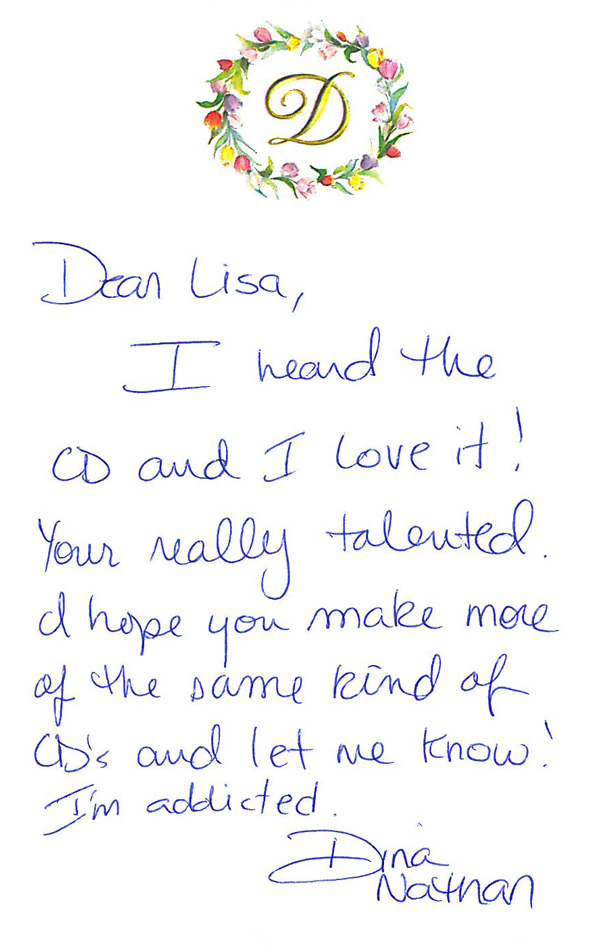 D
Dear Lisa,
I heard the
CD and I love it!
Your really talented.
I hope you make more
of the same kind of
CD's and let me know!
I'm addicted.
Dina
Nathan